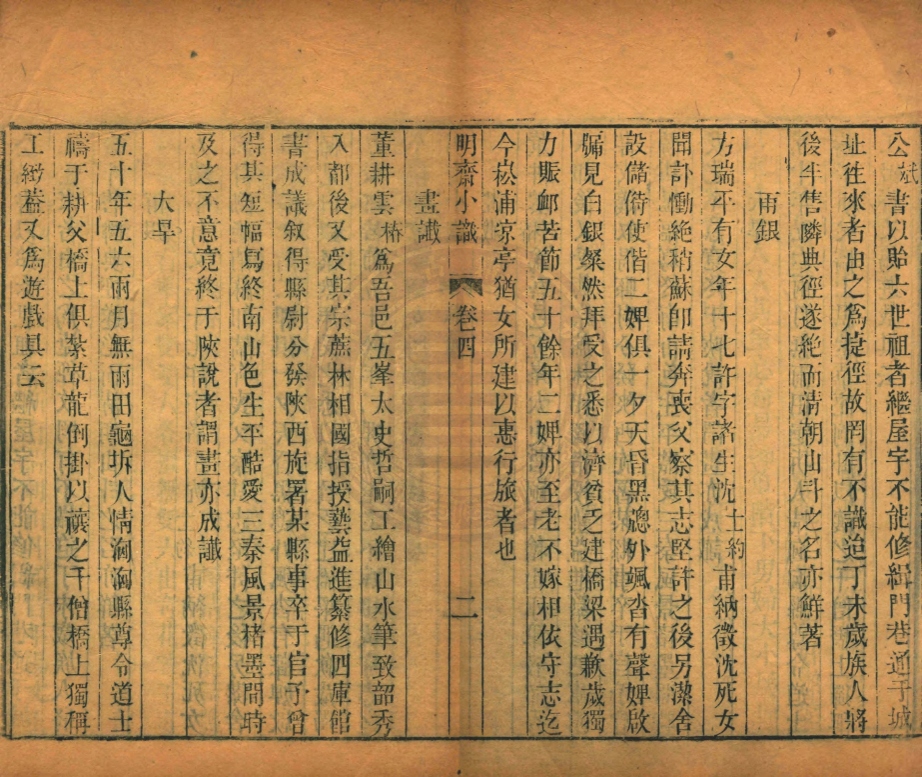 公斌書以貽六世祖者繼屋宇不能修緝門巷通于城
址徃來者由之爲捷徑故罔有不識迨丁未歲族人將
後半售隣典徑遂絶而淸朝山斗之名亦鮮著
雨銀
方瑞平有女年十七許字諸生沈士約甫納徵沈死女
聞訃慟絶稍蘇卽請奔喪父察其志堅許之後另潔舍
設儲偫使偕二婢俱一夕天昏黑窻外颯沓有聲婢啟
牖見白銀粲然拜受之悉以濟貧乏建橋梁遇歉歲獨
力賑卹苦節五十餘年二婢亦至老不嫁相依守志迄
今崧浦凉亭猶女所建以惠行旅者也
明齋小識 卷四 二
畫讖
董耕雲椿爲吾邑五峯太史哲嗣工繪山水筆致韶秀
入都後又受其宗蔗林相國指授藝益進纂修四庫館
書成議叙得縣尉分發陜西旋署某縣事卒于官予曾
得其短幅寫終南山色生平酷愛三秦風景楮墨間時
及之不意竟終于陜說者謂畫亦成讖
大旱
五十年五六兩月無雨田龜坼人情洶洶縣尊令道士
禱于耕父橋上俱紮草龍倒掛以禳之千僧橋上獨稱
工緻葢又爲遊戲具云